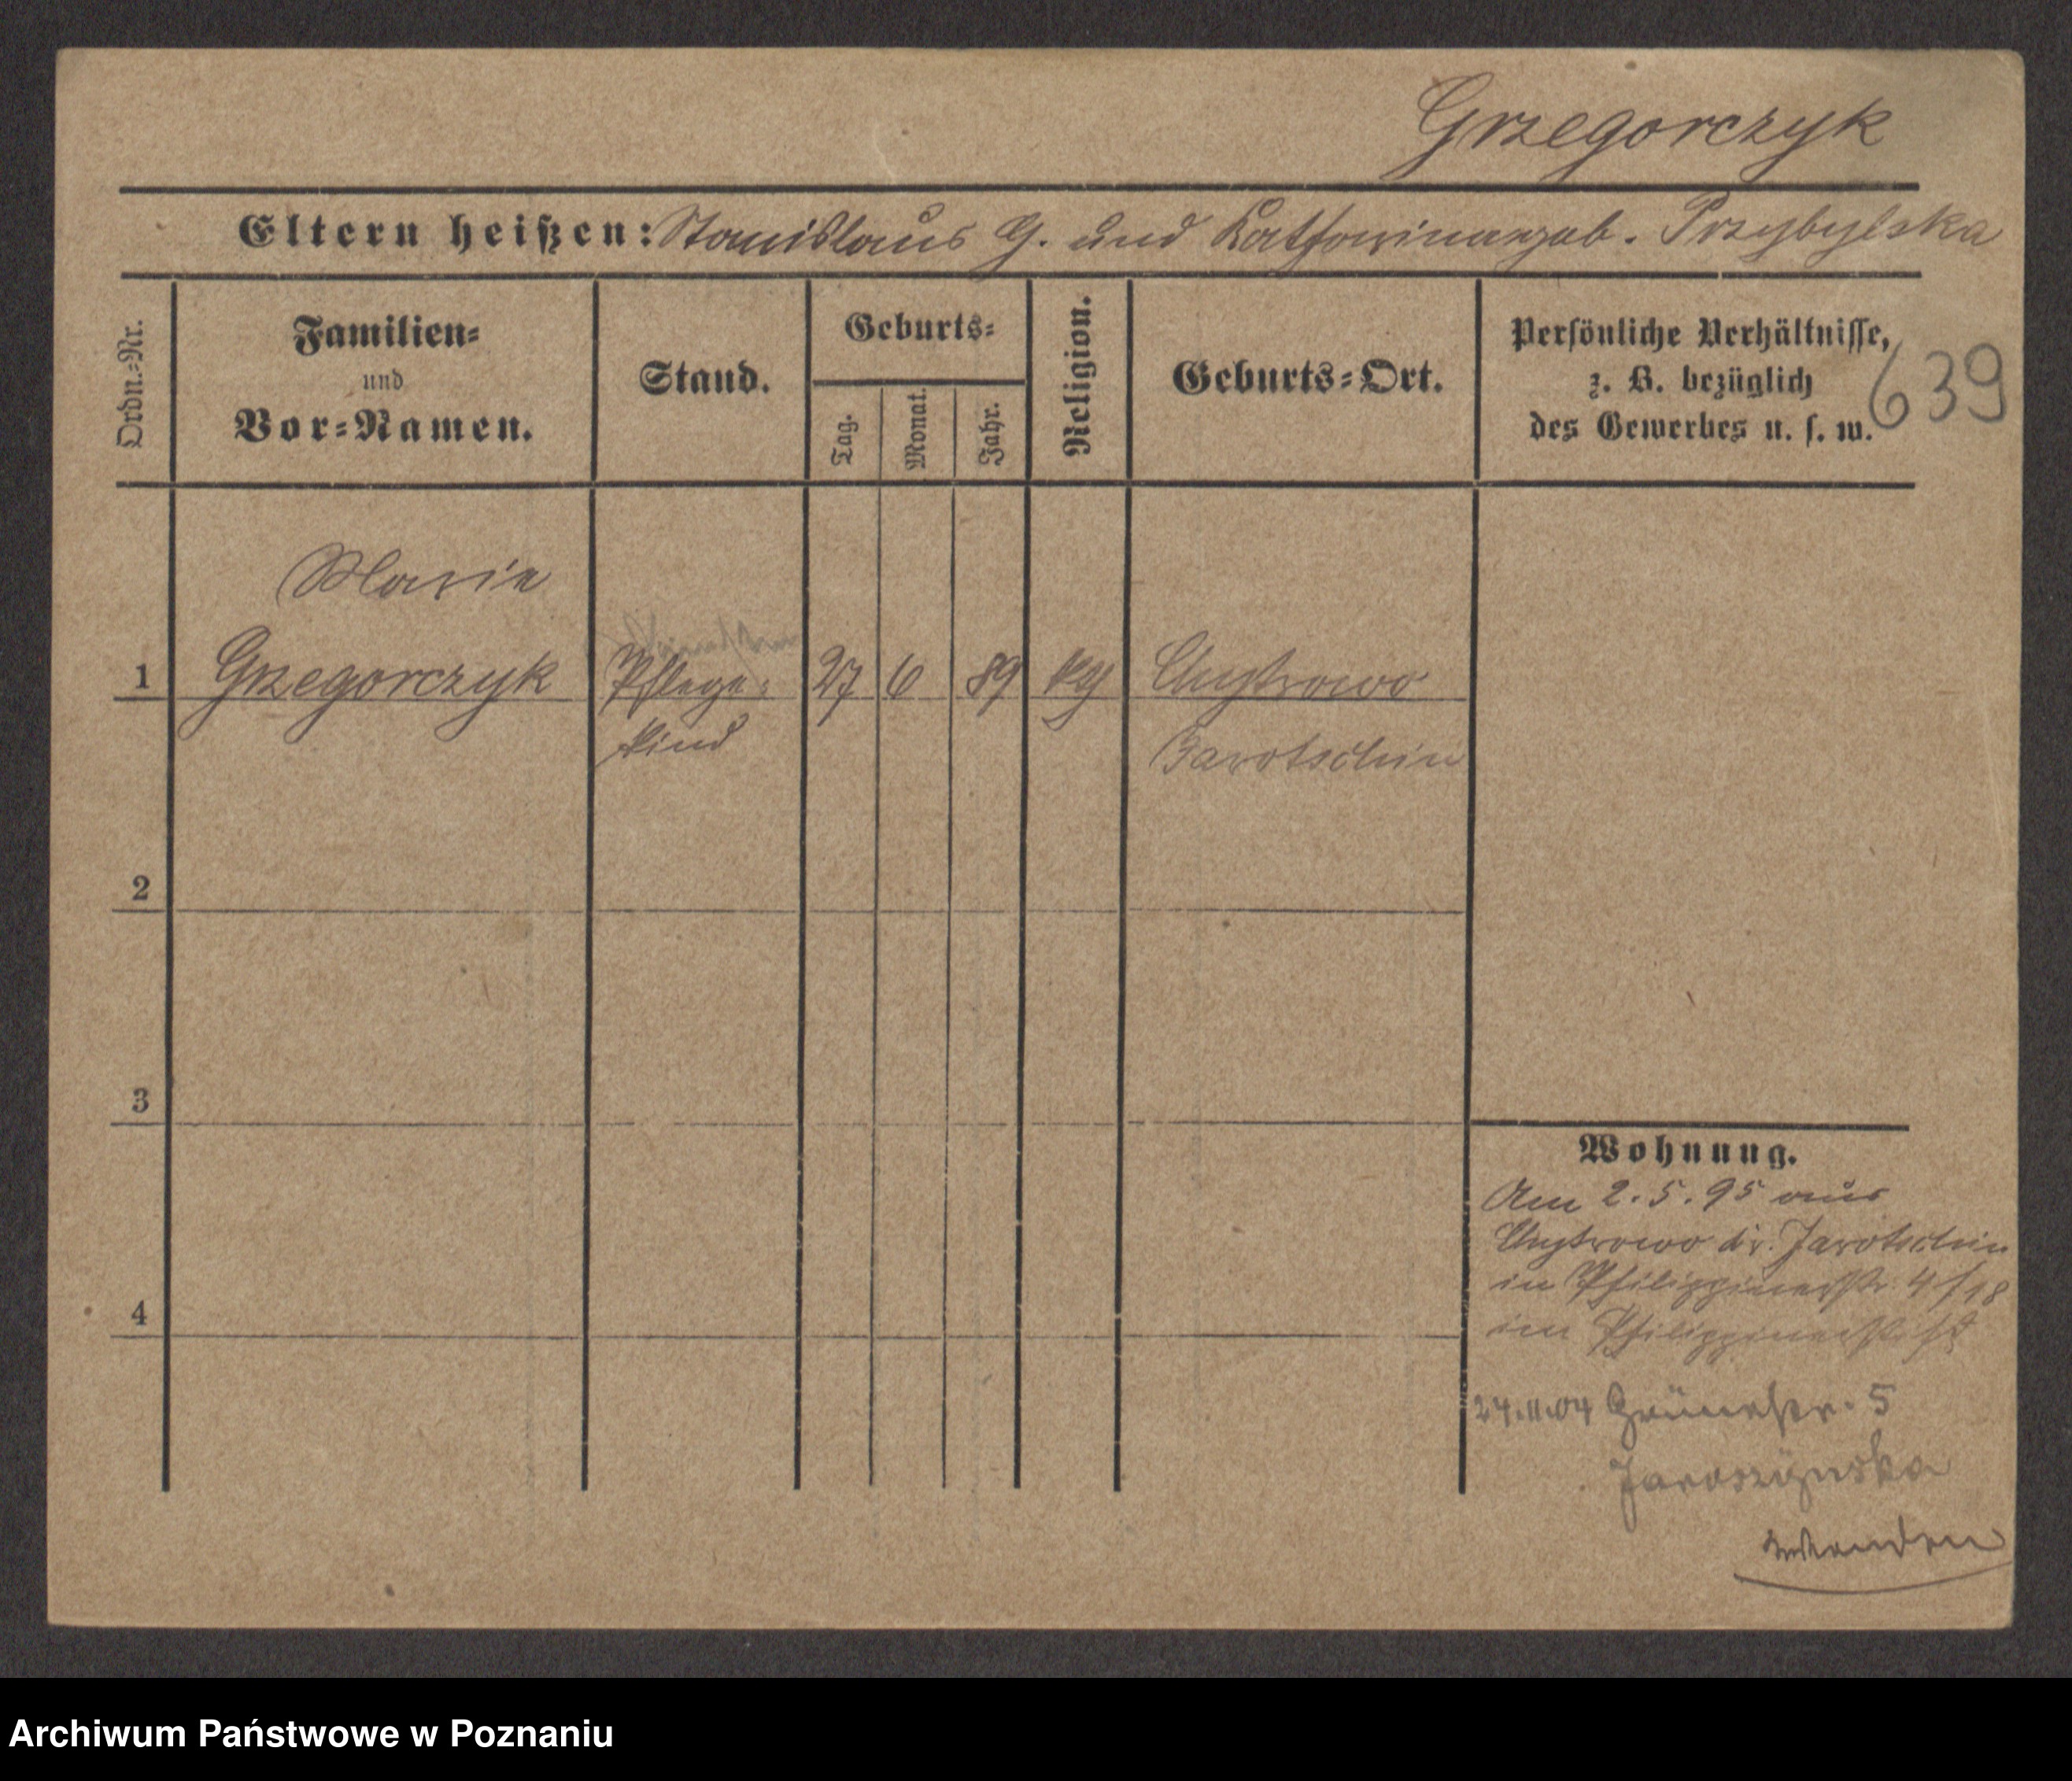 Grzegorczyk
Eltern heißen: Stanislaus G. und Katharina geb. Przybylska
Ordn.-Nr.
Familien-
und
Vor-Namen.
Stand.
Geburts-
Tag.
Monat.
Jahr.
Religion.
Geburts-Ort.
Persönliche Verhältnisse,
z. B. bezüglich
des Gewerbes u. s. w.
639
Marie
1 Grzegorczyk Pflege- 27 6 89 kg Chytrowo
kind Jarotschin
2
3
4
Wohnung.
Am 2.5.95 aus
Chytrowo kr. Jarotschin
in Philippinenstr. 4/18
im Philippinenstift
24.11.04 Grünestr. 5
Jaroszynska
wenden
Archiwum Państwowe w Poznaniu